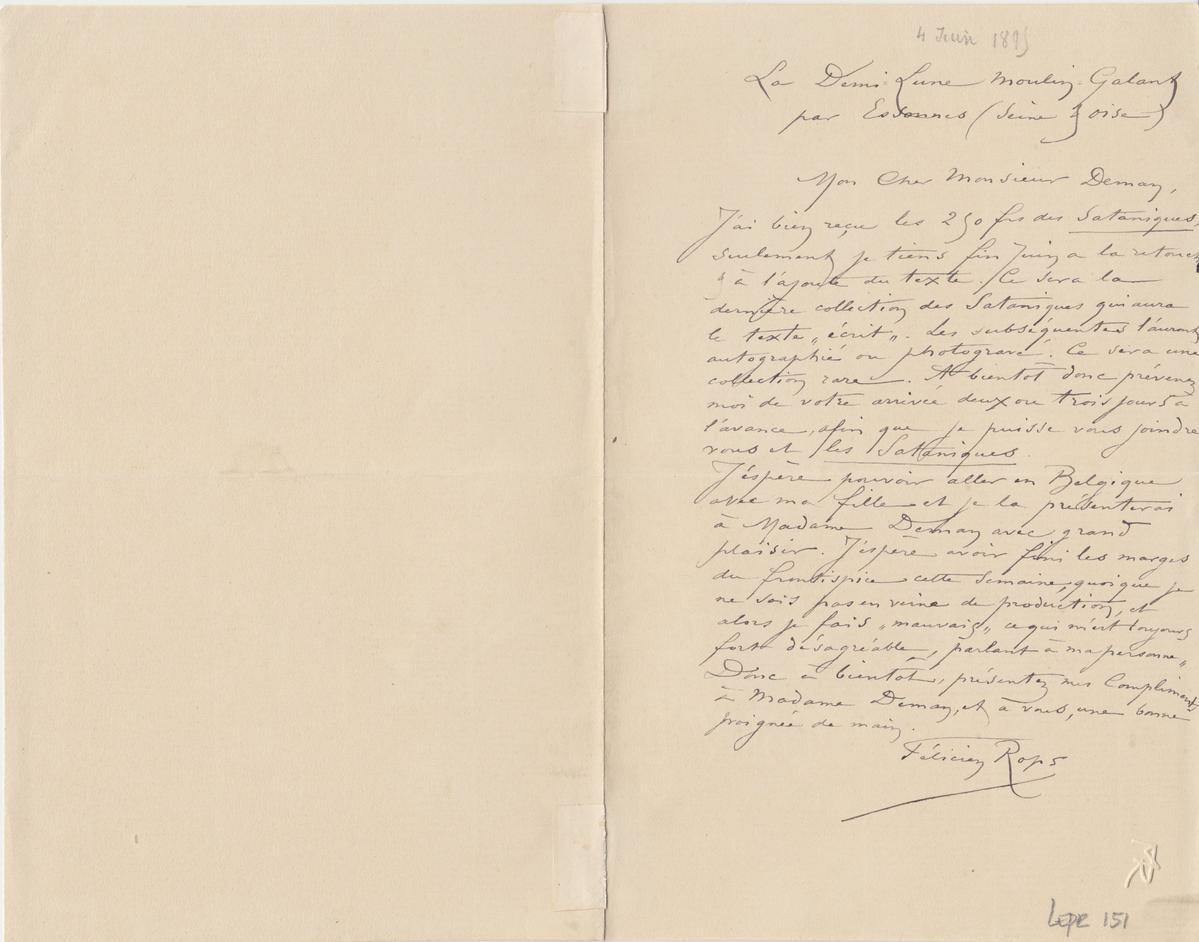 4 Juin 1895
La Demi-Lune Moulin-Galant
par Essonnes (Seine & Oise)
Mon Cher Monsieur Deman,
J'ai bien reçu les 250 frs des Sataniques,
seulement je tiens fin Juin a la retouche
& à l'ajoute du texte. Ce sera la
dernière collection des Sataniques qui aura
le texte „écrit„. Les subséquentes l'auront
autographié ou photogravé. Ce sera une
collection rare. A bientôt donc prévenez
moi de votre arrivée deux ou trois jours a
l'avance, afin que je puisse vous joindre
vous et les Sataniques.
J'éspère pouvoir aller en Belgique
avec ma fille et je la présenterai
à Madame Deman avec grand
plaisir. J'éspère avoir fini les marges
du frontispice cette semaine, quoique je
ne sois pas en veine de production, et
alors je fais „mauvais„ ce qui m'est toujours
fort désagréable, parlant à ma personne„
Donc à bientôt, présentez mes Compliments
à Madame Deman, et à vous, une bonne
poignée de main.
Félicien Rops
Lepr 151